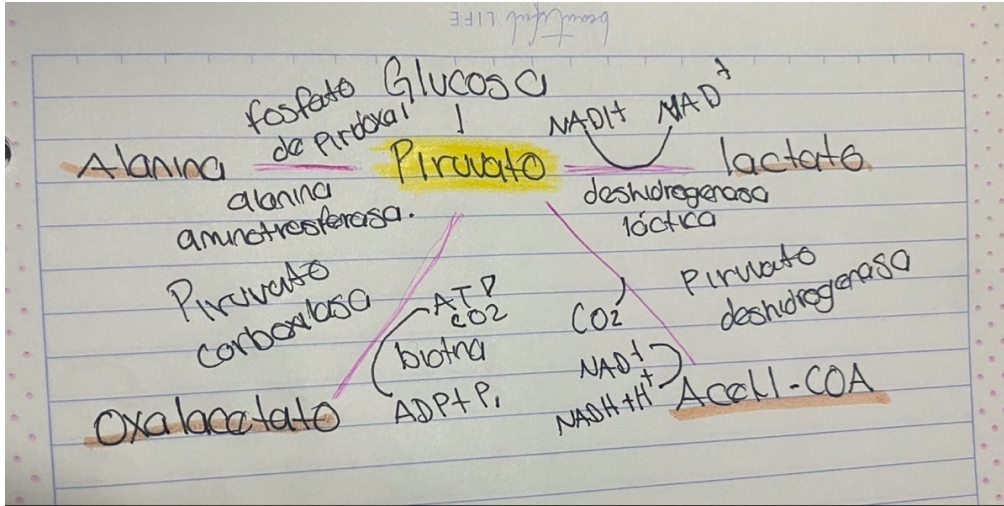 beautiful LIFE
Glucosa
fosfato
de Piridoxal
NADH
NAD+
Alanina
Piruvato
lactato
alanina
aminotresferasa.
deshidrogenasa
láctica
Piruvato
carboxilasa
ATP
CO2
biotna
ADP+Pi
Oxalacetato
Piruvato
deshidrogenasa
CO2
NAD+
NADH+H+
Acetil-COA